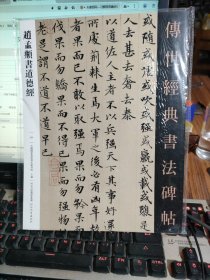 傳世經典書法碑帖
或隨或噓或吹或强或羸或載或隳是
人去甚去奢去泰
以道佐人主者不以兵强天下其事好還
所處荊棘生焉大軍之後必有凶年故
果而已不敢以取强焉果而勿矜
伐果而勿驕果而不得已果而勿强物
老是謂不道不道早已
趙孟頫書道德經